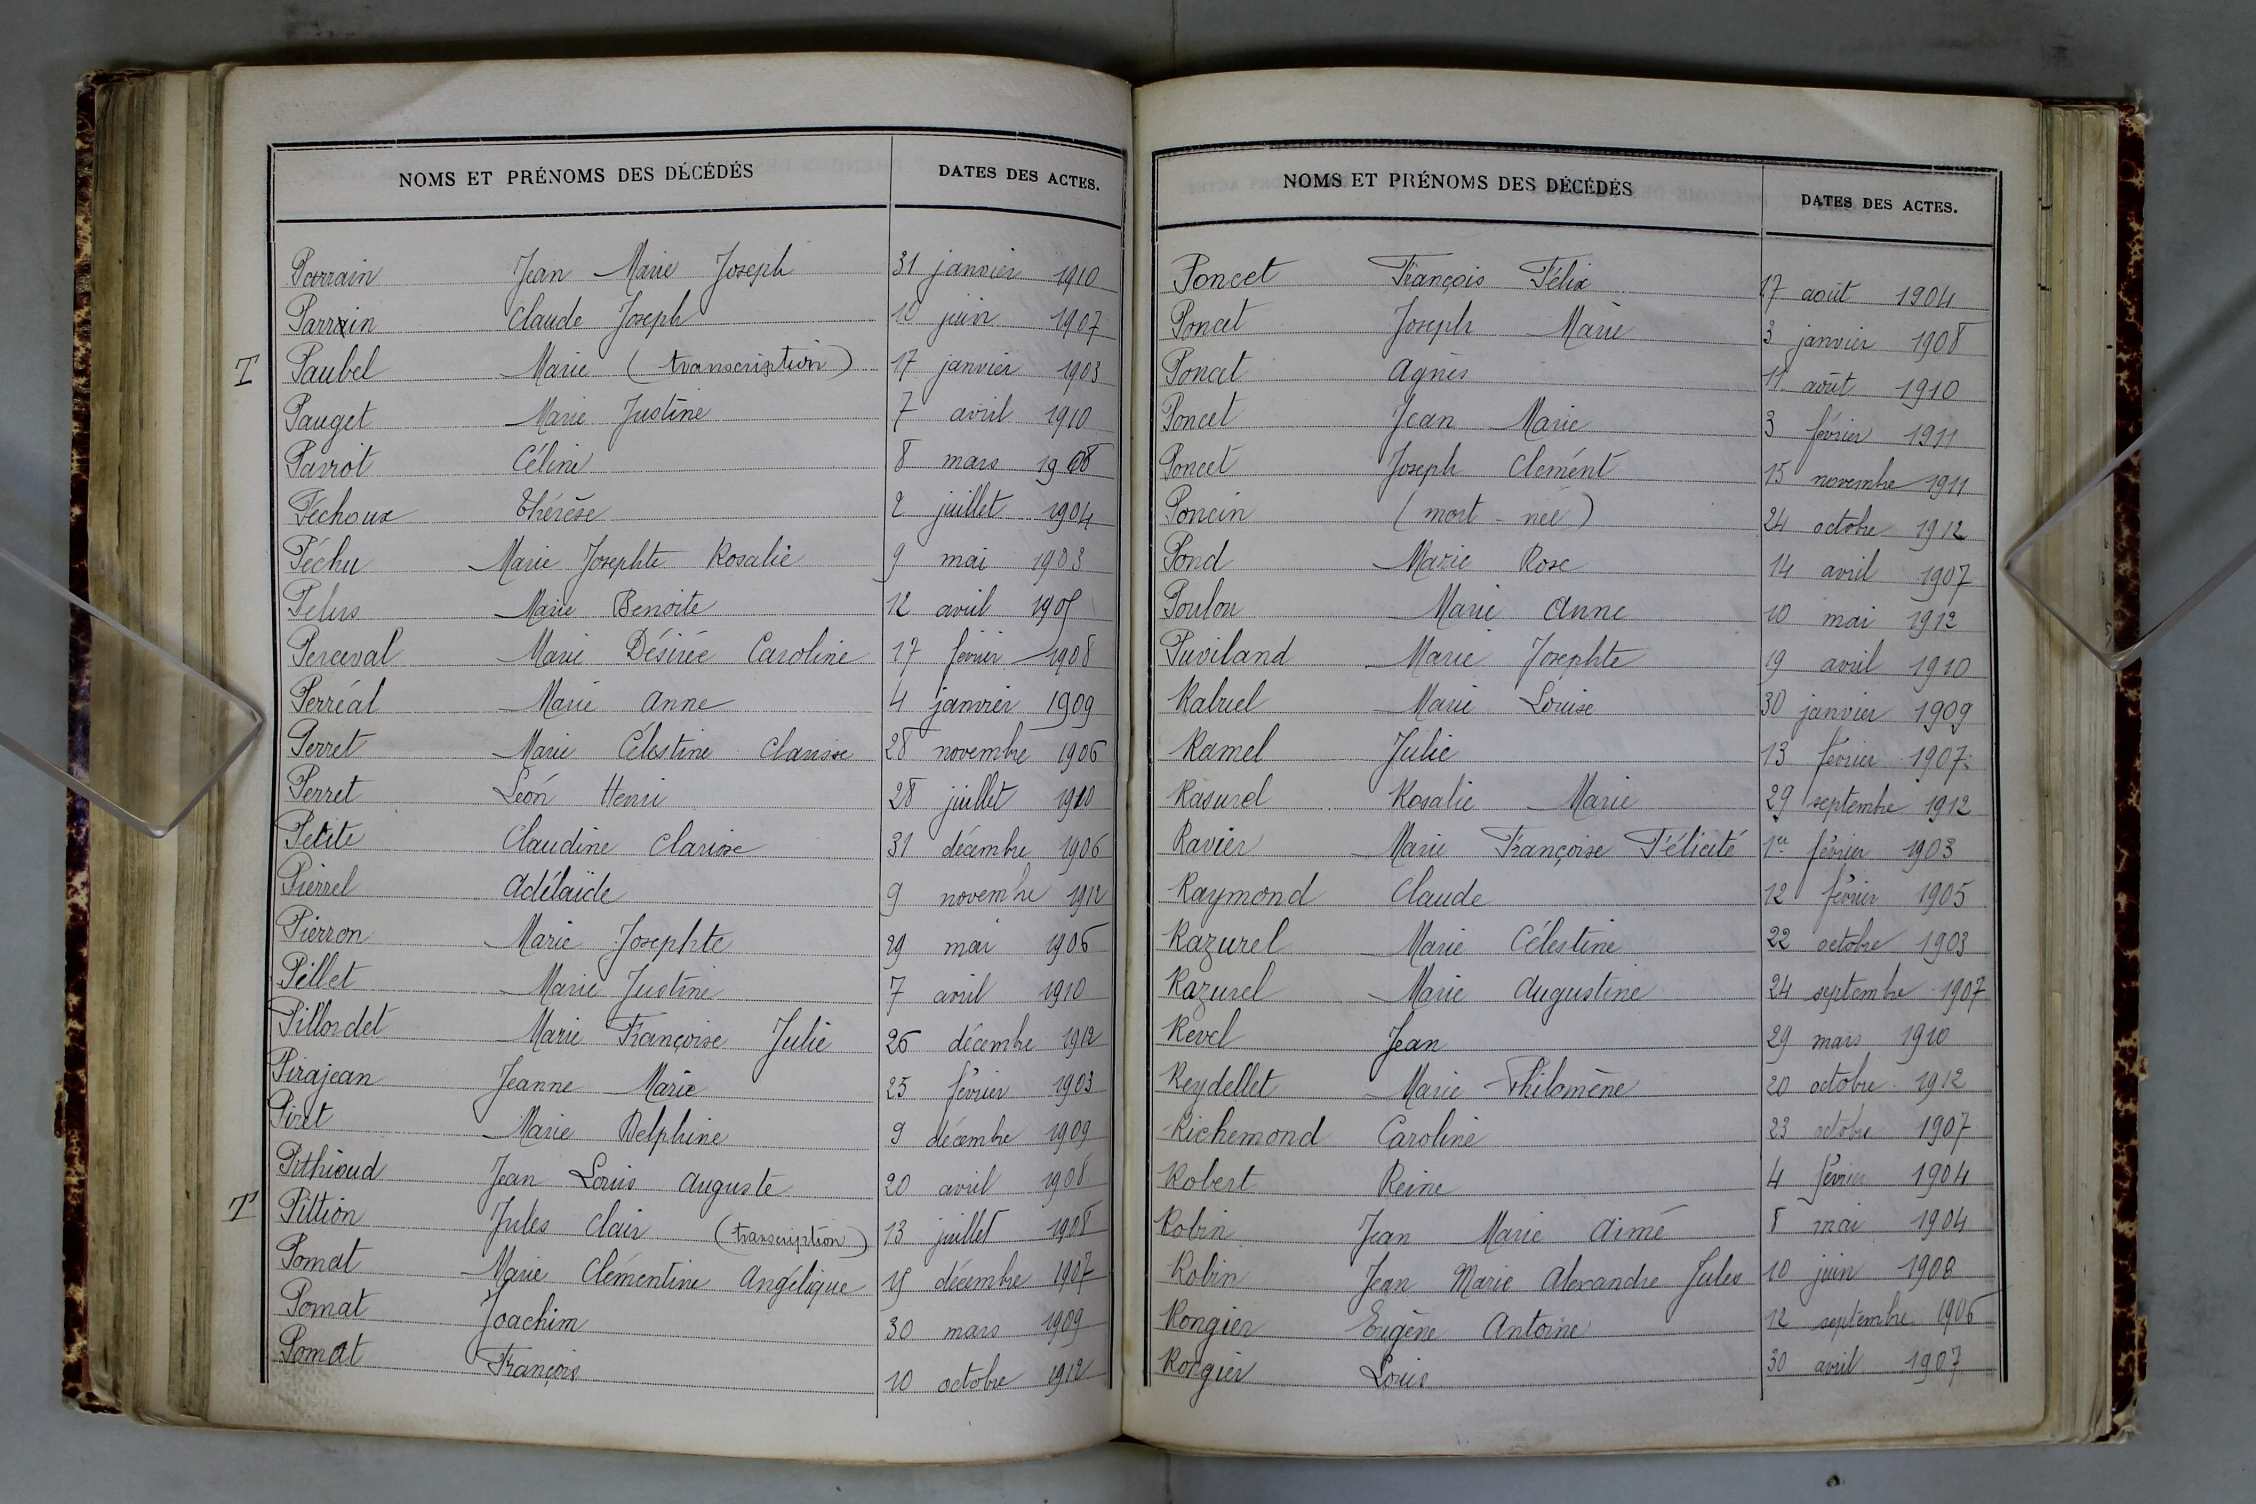 NOMS ET PRÉNOMS DES DÉCÉDÉS DATES DES ACTES.
Parrain Jean Marie Joseph 31 janvier 1910
Parrain Claude Joseph 10 juin 1907
T Paubel Marie (transcription) 17 janvier 1903
Pauget Marie Justine 7 avril 1910
Pavrot Céline 8 mars 1908
Péchoux Thérèse 2 juillet 1904
Péchu Marie Josephte Rosalie 9 mai 1903
Pelus Marie Benoite 12 avril 1905
Perceval Marie Désirée Caroline 17 février 1908
Perréal Marie Anne 4 janvier 1909
Perret Marie Célestine Clarisse 28 novembre 1906
Perret Léon Henri 28 juillet 1910
Petite Claudine Clarisse 31 décembre 1906
Pierrel Adélaïde 9 novembre 1912
Pierron Marie Josephte 29 mai 1906
Pillet Marie Justine 7 avril 1910
Pillordet Marie Françoise Julie 26 décembre 1912
Pirajean Jeanne Marie 25 février 1903
Piret Marie Delphine 9 décembre 1909
Pithioud Jean Louis Auguste 20 avril 1908
T Pittion Jules Clair (transcription) 13 juillet 1908
Pomat Marie Clémentine Angélique 15 décembre 1907
Pomat Joachim 30 mars 1909
Pomat François 10 octobre 1912
NOMS ET PRÉNOMS DES DÉCÉDÉS DATES DES ACTES.
Poncet François Félix 17 août 1904
Poncet Joseph Marie 3 janvier 1908
Poncet Agnès 11 août 1910
Poncet Jean Marie 3 février 1911
Poncet Joseph Clemént 15 novembre 1911
Poncin (mort-née) 24 octobre 1912
Pond Marie Rose 14 avril 1907
Poulon Marie Anne 10 mai 1912
Puviland Marie Josephte 19 avril 1910
Rabuel Marie Louise 30 janvier 1909
Ramel Julie 13 février 1907
Rasurel Rosalie Marie 29 septembre 1912
Ravier Marie Françoise Félicité 1er février 1903
Raymond Claude 12 février 1905
Razurel Marie Célestine 22 octobre 1903
Razurel Marie Augustine 24 septembre 1907
Revel Jean 29 mars 1910
Reydellet Marie Philomène 20 octobre 1912
Richemond Caroline 23 octobre 1907
Robert Reine 4 février 1904
Robin Jean Marie Aimé 8 mai 1904
Robin Jean Marie Alexandre Jules 10 juin 1908
Rongier Eugène Antoine 12 septembre 1906
Rongier Louis 30 avril 1907